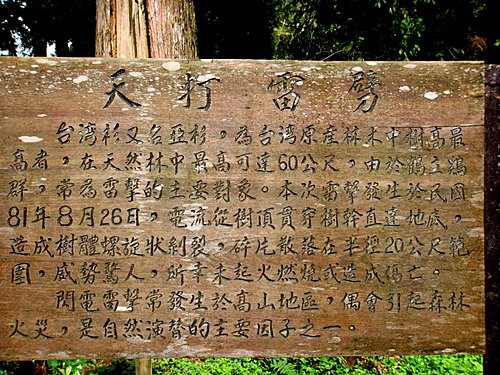 天打雷劈
台湾杉又名亞杉，為台灣原産林木中樹高最
高者，在天然林中最高可達60公尺，由於鶴立鷄
群，常為雷擊的主要對象。本次雷擊發生於民国
81年8月26日，電流從樹頂貫穿樹幹直達地底，
造成樹體螺旋狀剝裂，碎片散落在半徑20公尺範
圍，威勢驚人，所幸未起火燃燒或造成傷亡。
閃電雷擊常發生於高山地區，偶會引起森林
火災，是自然演替的主要因子之一。